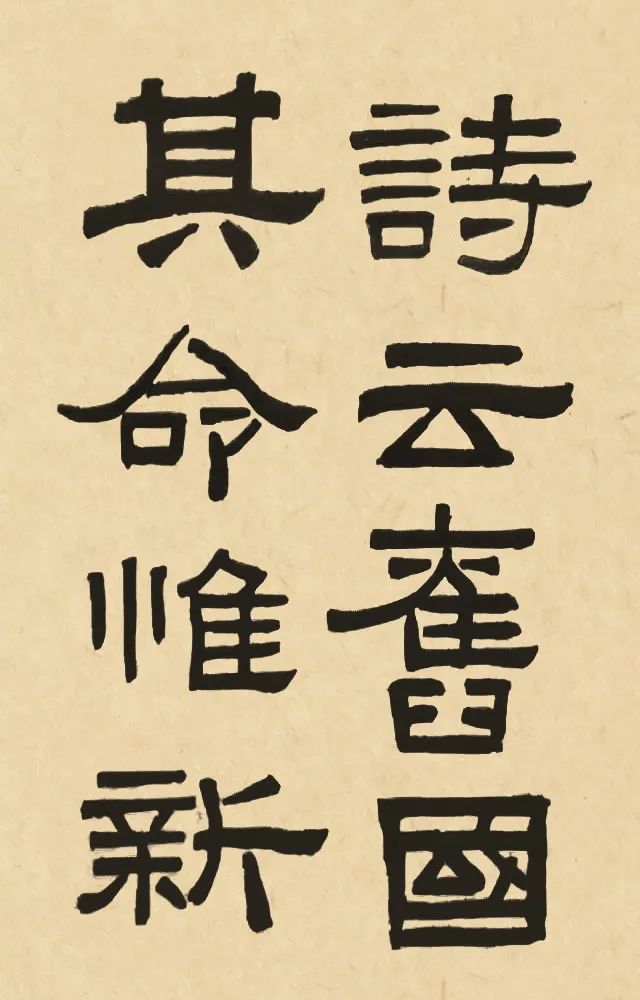 詩云舊國
其命惟新